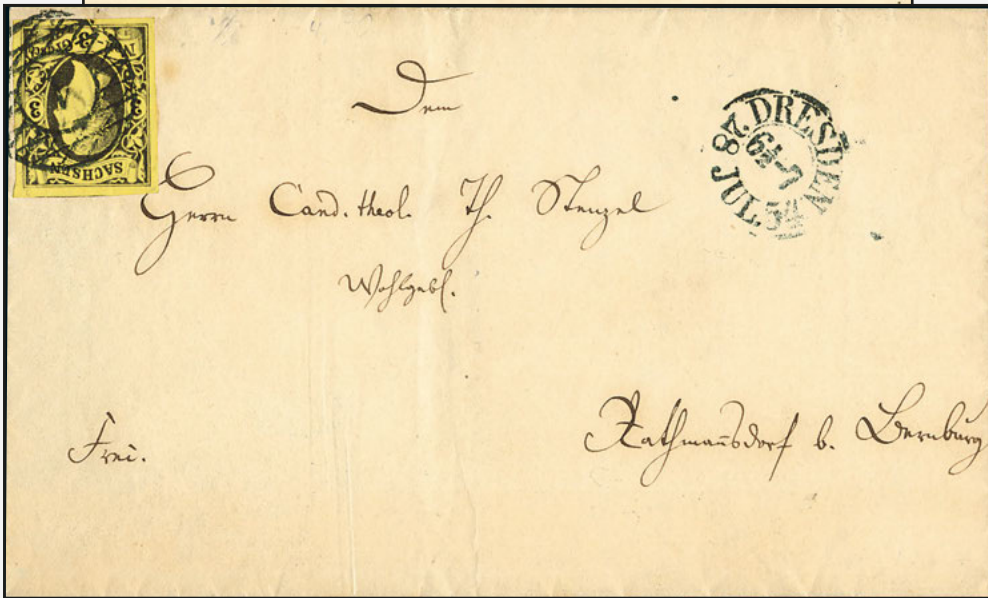 SACHSEN
Dem
DRESDEN
28 JUL 54
6½-7
Herrn Cand. theol. Th. Stenzel
Wohlgeb.
Frei.
Rathmañsdorf b. Bernburg